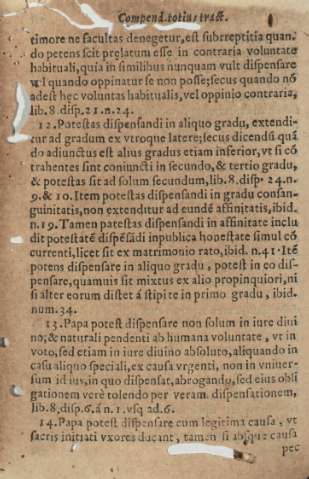 Compend. totius tract.
timore ne facultas denegetur, est subreptitia quan-
do petens scit prelatum esse in contraria voluntate
habituali, quia in similibus nunquam vult dispensare
vel quando oppinatur se non posse; secus quando nõ
adest hęc voluntas habitualis, vel oppinio contraria,
lib. 8. disp. 21. n. 24.
12. Potestas dispensandi in aliquo gradu, extendi-
tur ad gradum ex vtroque latere; secus dicendũ quã
do adiunctus est alius gradus etiam inferior, vt si cõ
trahentes sint coniuncti in secundo, & tertio gradu,
& potestas sit ad solum secundum, lib. 8. disp 24. n.
9. & 10. Item potestas dispensandi in gradu consan-
guinitatis, non extenditur ad eundẽ affinitatis, ibid.
n. 19. Tamen patestas dispensandi in affinitate inclu
dit potestatẽ dispẽsãdi inpublica honestate simul cõ
currenti, licet sit ex matrimonio rato, ibid. n. 41. Itẽ
potens dispensare in aliquo gradu, potest in eo dis-
pensare, quamuis sit mixtus ex alio propinquiori, ni
si alter eorum distet á stipite in primo gradu, ibid.
num. 34.
13. Papa potest dispensare non solum in iure diui
no, & naturali pendenti ab humana voluntate, vt in
voto, sed etiam in iure diuino absoluto, aliquando in
casu aliquo speciali, ex causa vrgenti, non in vniuer-
sum id ius, in quo dispensat, abrogando, sed eius obli
gationem verè tolendo per veram dispensationem,
lib. 8. disp. 6. á n. 1. vsq ad. 6.
14. Papa potest dispensare cum legitima causa, vt
sacris initiati vxores ducant, tamen si absque causa